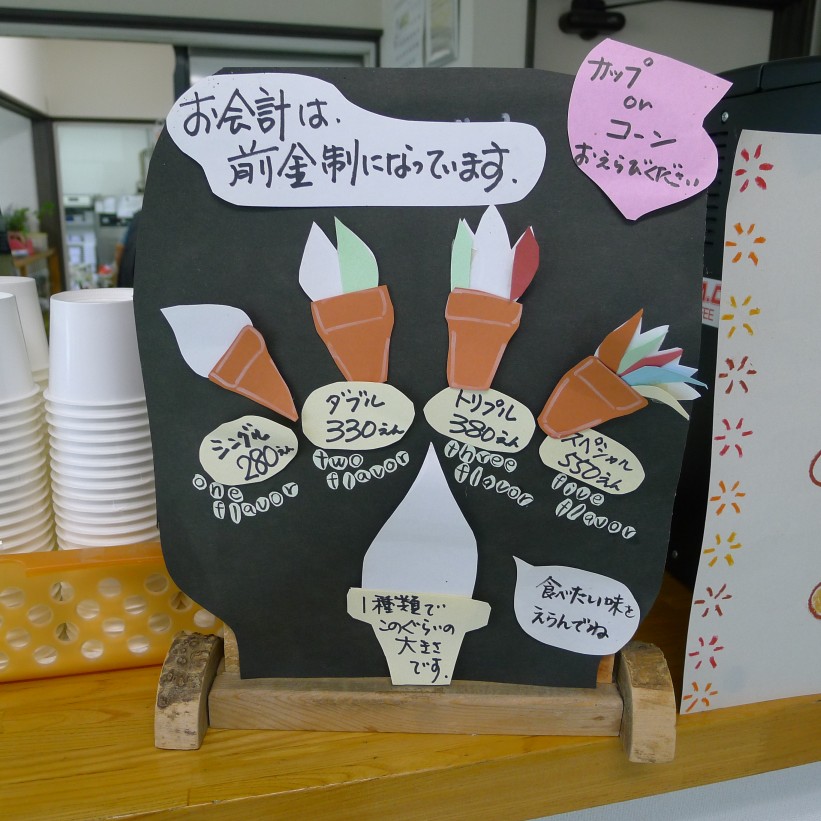 お会計は、
前金制になっています.
カップ
or
コーン
おえらびください
シングル
280えん
one
flavor
ダブル
330えん
two
flavor
トリプル
380えん
three
flavor
スペシャル
550えん
five
flavor
1種類で
このぐらいの
大きさ
です.
食べたい味を
えらんでね